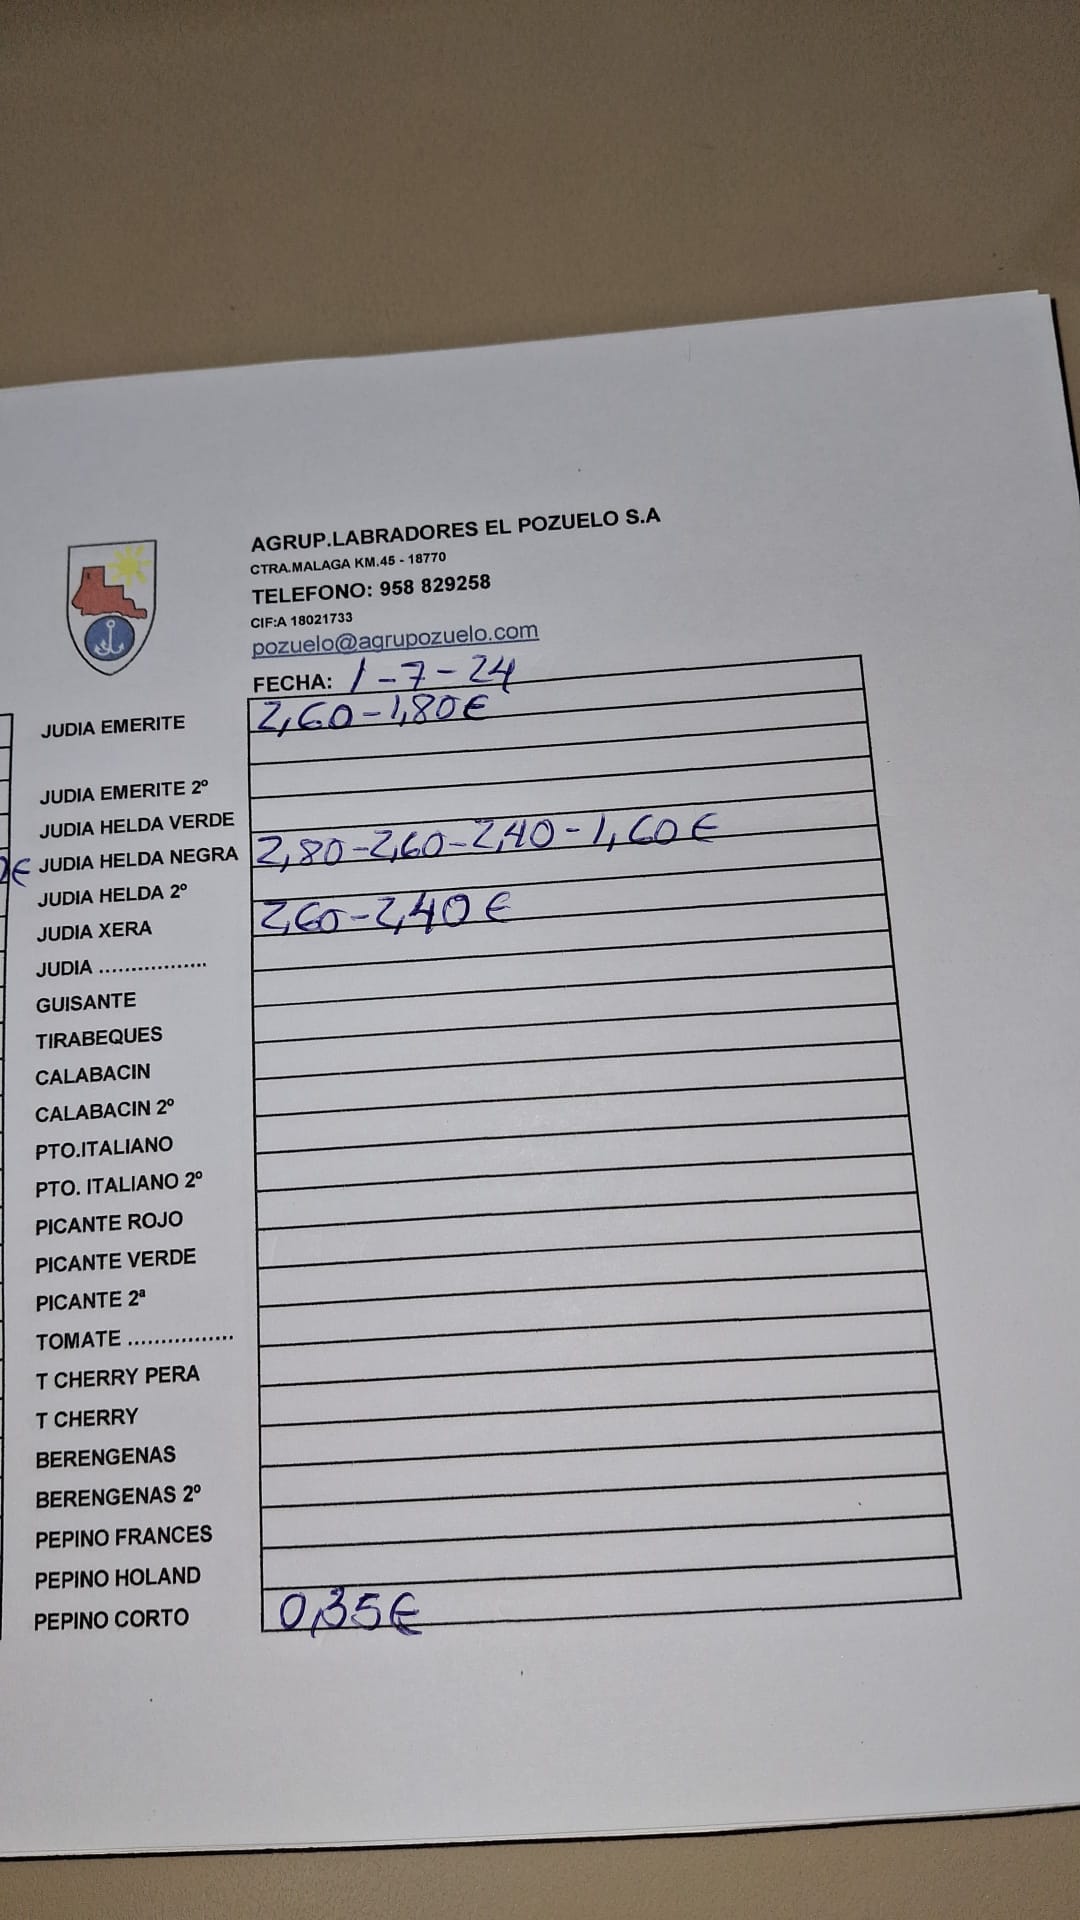 AGRUP.LABRADORES EL POZUELO S.A
CTRA.MALAGA KM.45 - 18770
TELEFONO: 958 829258
CIF:A 18021733
pozuelo@agrupozuelo.com
FECHA: 1-7-24
JUDIA EMERITE 2,60-1,80€
JUDIA EMERITE 2º
JUDIA HELDA VERDE
JUDIA HELDA NEGRA 2,80-2,60-2,40-1,60€
JUDIA HELDA 2º
JUDIA XERA 2,60-2,40€
JUDIA .................
GUISANTE
TIRABEQUES
CALABACIN
CALABACIN 2º
PTO.ITALIANO
PTO. ITALIANO 2º
PICANTE ROJO
PICANTE VERDE
PICANTE 2ª
TOMATE ................
T CHERRY PERA
T CHERRY
BERENGENAS
BERENGENAS 2º
PEPINO FRANCES
PEPINO HOLAND
PEPINO CORTO 0,35€